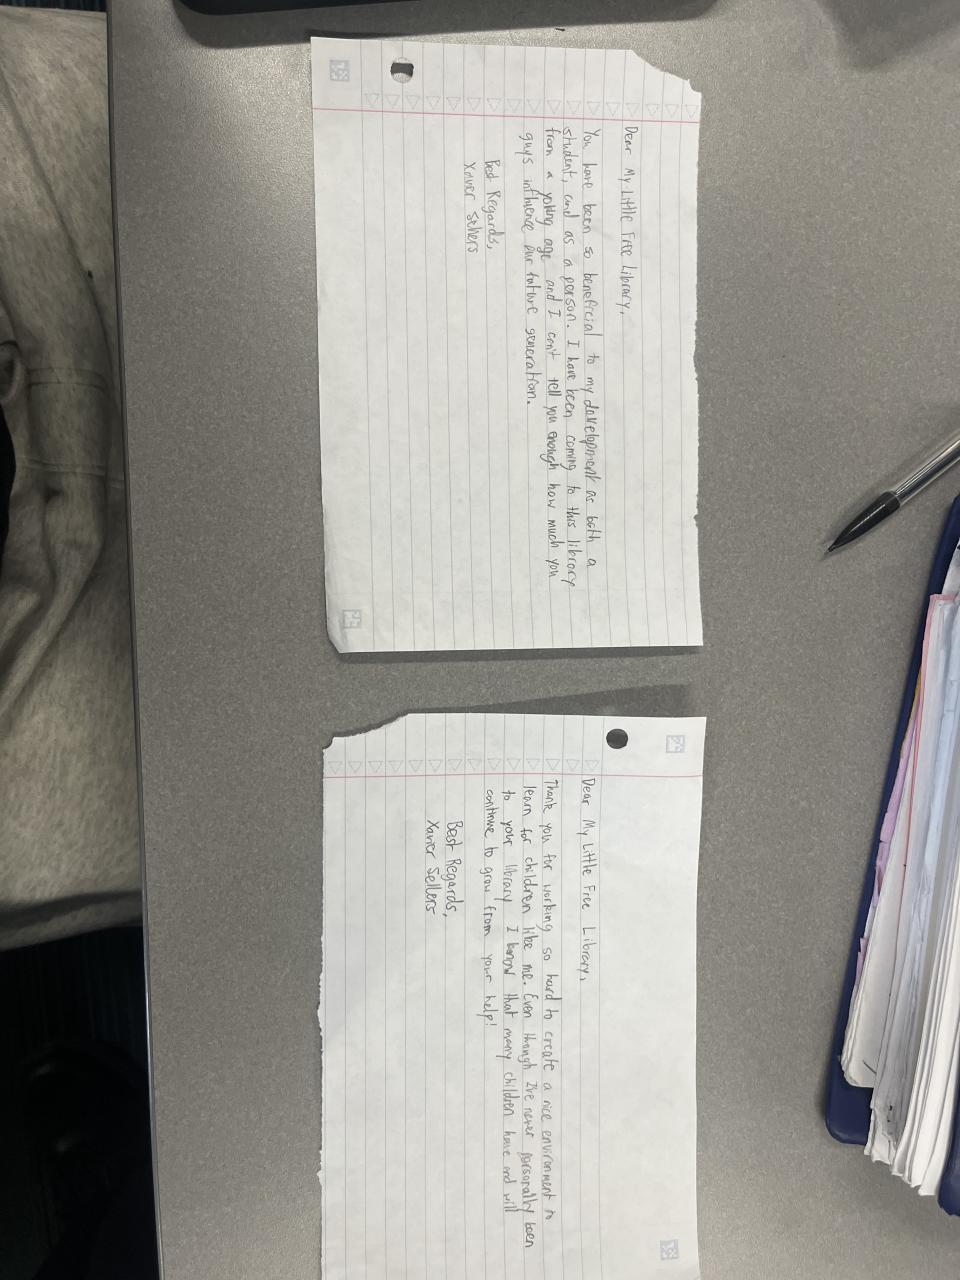 Dear My Little Free Library,
You have been so beneficial to my development as both a
student, and as a person. I have been coming to this library
from a young age and I can't tell you enough how much you
guys influence our future generation.
Best Regards,
Xavier Sellers
Dear My Little Free Library,
Thank you for working so hard to create a nice environment to
learn for children like me. Even though I've never personally been
to your library I know that many children have and will
continue to grow from your help!
Best Regards,
Xavier Sellers